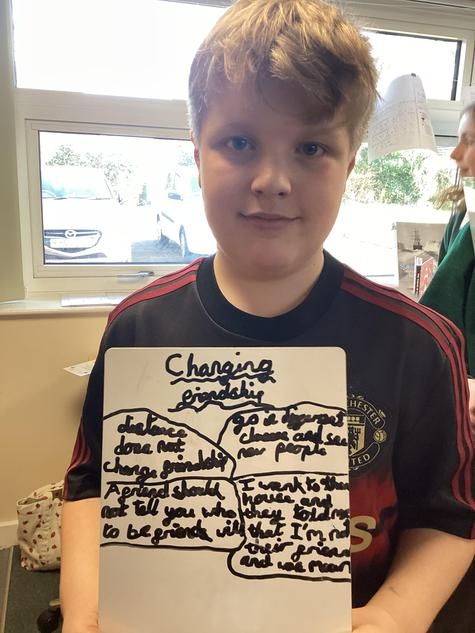 Changing
friendship
distance
does not
change friendship
go in different
classes and see
new people
A friend should
not tell you who
to be friends with
I went to their
house and
they told me
that I'm not
their friend
and we
CHESTER
UNITED